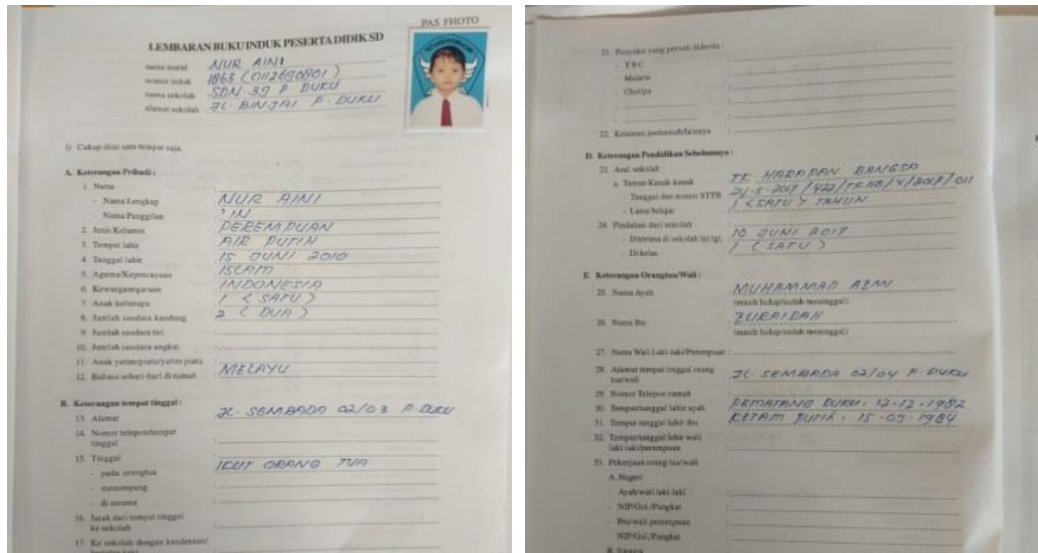 PAS PHOTO
LEMBARAN BUKU INDUK PESERTA DIDIK SD
nama murid NUR AINI
nomor induk 1863 (0112690801)
nama sekolah SDN. 39 P. DUKU
alamat sekolah JL. BINJAI P. DUKU
1) Cukup diisi satu tempat saja.
A. Keterangan Pribadi :
1. Nama :
- Nama Lengkap : NUR AINI
- Nama Panggilan : IN
2. Jenis Kelamin : PEREMPUAN
3. Tempat lahir : AIR PUTIH
4. Tanggal lahir : 15 JUNI 2010
5. Agama/Kepercayaan : ISLAM
6. Kewarganegaraan : INDONESIA
7. Anak keberapa : 1 < SATU >
8. Jumlah saudara kandung : 2 ( DUA )
9. Jumlah saudara tiri :
10. Jumlah saudara angkat :
11. Anak yatim/piatu/yatim piatu :
12. Bahasa sehari-hari di rumah : MELAYU
B. Keterangan tempat tinggal :
13. Alamat : JL. SEMBADA 02/03 P. DUKU
14. Nomor telepon/tempat
tinggal :
15. Tinggal :
- pada orangtua : IKUT ORANG TUA
- menumpang :
- di asrama :
16. Jarak dari tempat tinggal
ke sekolah :
17. Ke sekolah dengan kendaraan/
21. Penyakit yang pernah diderita :
- TBC :
- Malaria :
- Cholipa :
-
22. Kelainan jasmaniah/lainnya :
D. Keterangan Pendidikan Sebelumnya :
23. Asal sekolah :
a. Taman Kanak-kanak : TK HARAPAN BANGSA
- Tanggal dan nomor STTB
- Lama belajar : 1 < SATU > TAHUN
24. Pindahan dari sekolah :
- Diterima di sekolah ini tgl. : 10 JUNI 2017
- Di kelas : 1 ( SATU )
E. Keterangan Orangtua/Wali :
25. Nama Ayah : MUHAMMAD AZMI
(masih hidup/sudah meninggal)
26. Nama Ibu : ZURAIDAH
(masih hidup/sudah meninggal)
27. Nama Wali Laki-laki/Perempuan :
28. Alamat tempat tinggal orang
tua/wali : JL. SEMBADA 02/04 P. DUKU
29. Nomor Telepon rumah :
30. Tempat/tanggal lahir ayah : PEMATANG DUKU. 12-12-1982
31. Tempat tanggal lahir ibu : KETAM PUTIH. 15-09-1984
32. Tempat/tanggal lahir wali
laki-laki/perempuan :
33. Pekerjaan orang tua/wali
A. Negeri
- Ayah/wali laki-laki :
- NIP/Gol./Pangkat :
- Ibu/wali perempuan :
NIP/Gol./Pangkat :
B. Swasta